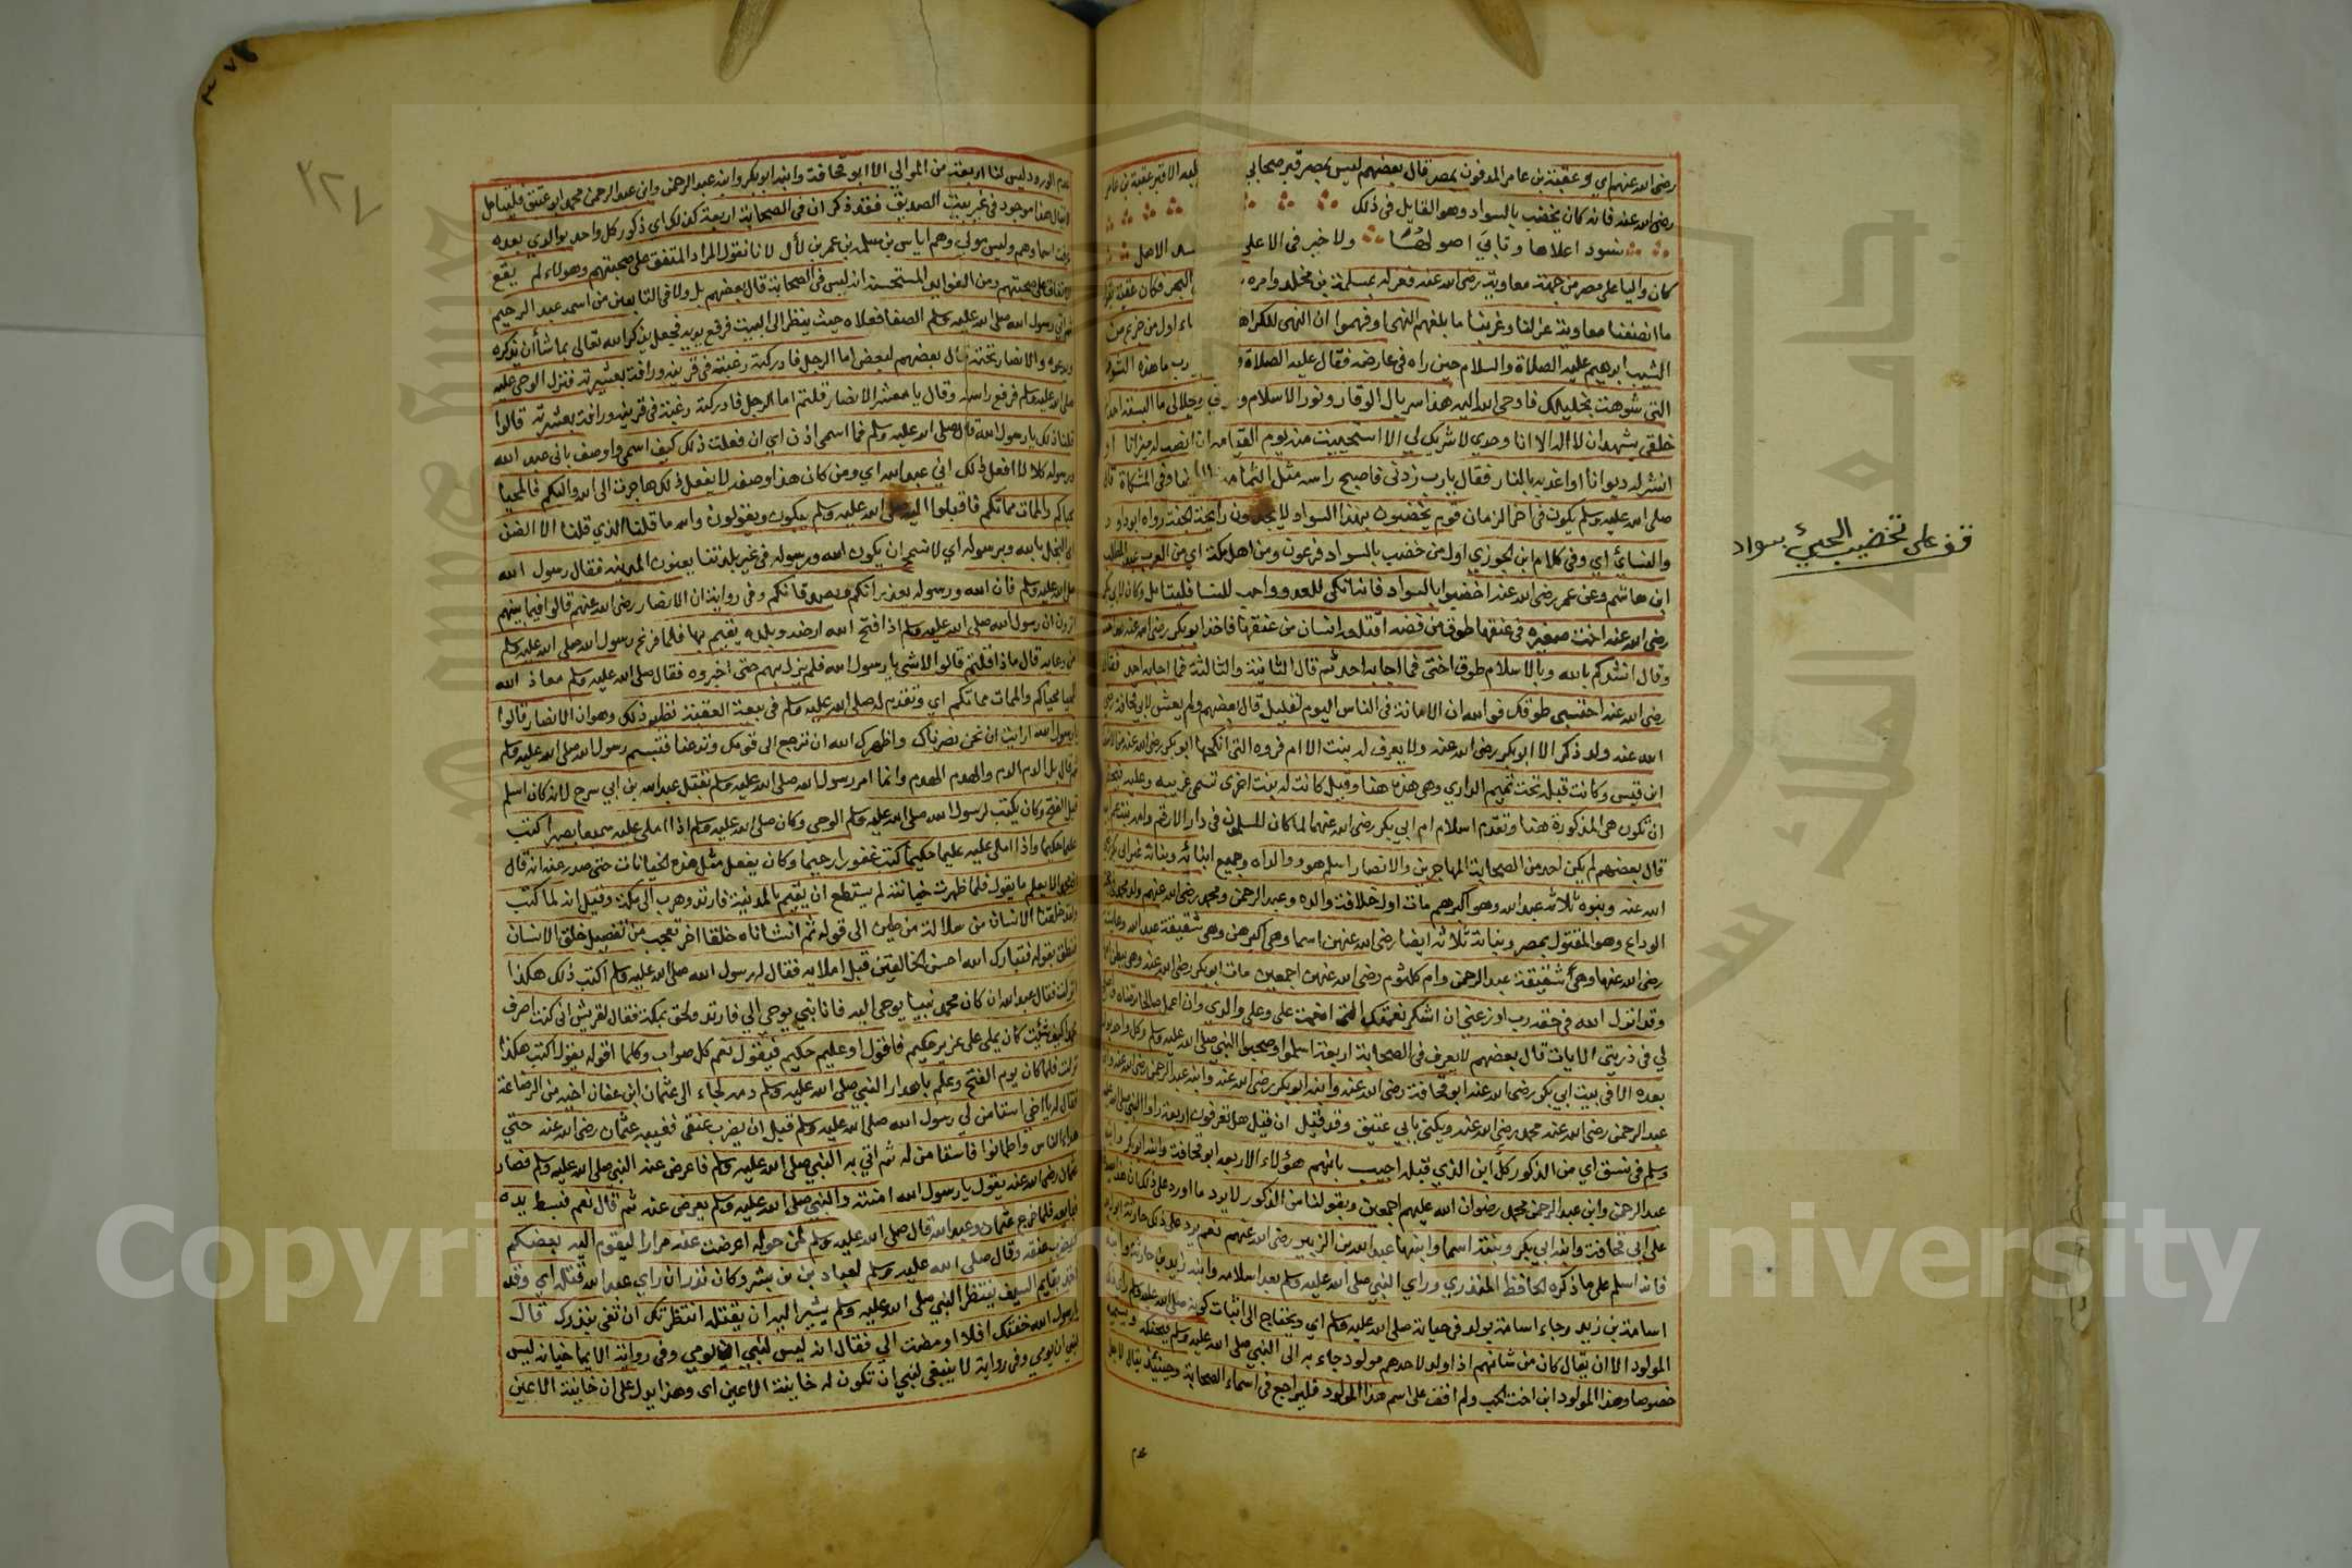 رضى الله عنهم اي وعقبة بن عامر المدفون بمصر قال بعضهم ليس بمصر قبر صحابي عليه الا قبر عقبة بن عامر
رضى الله عنه فانه كان يخضب بالسواد وهو القايل في ذلك
نسود اعلاها وتابى اصولها ولا خير في الاعلى الاصل
كان واليا على مصر من جهة معاوية رضى الله عنه فعزله بمسلمة بن مخلد وامره البحر فكان عقبة يقول
ما انصفنا معاوية عزلنا وغربنا ما بلغهم النهى او فهموا ان النهى للكراهة اول من خزم من
الشيب ابرهيم عليه الصلاة والسلام حين راه في عارضه فقال عليه الصلاة رب ما هذه الشوهة
التي شوهت بخليلك فاوحى الله اليه هذا سربال الوقار ونور الاسلام وجلالي ما البسته احدا
خلقي يشهد ان لا اله الا انا وحدي لا شريك لي الا استحييت منه يوم القيامة ان انصب له ميزانا او
انشر له ديوانا او اعذبه بالنار فقال يارب زدني فاصبح راسه مثل الثغامة وفي المشكاة قال
صلى الله عليه وسلم يكون في اخر الزمان قوم يخضبون بهذا السواد لا يجدون رايحة الجنة رواه ابو داود
والنسائي اي وفي كلام ابن الجوزي اول من خضب بالسواد فرعون ومن اهل مكة اي من العرب عبد المطلب
ابن هاشم وعن عمر رضى الله عنه اخضبوا بالسواد فانه انكى للعدو واحب للنسا فليتامل وكان لابي بكر
رضى الله عنه اخت صغيرة في عنقها طوق من فضة اقتلعه انسان من عنقها فاخذ ابو بكر رضى الله عنه بيد اخته
وقال انشدكم بالله وبالاسلام طوق اختي فما اجابه احد ثم قال الثانية والثالثة فما اجابه احد فقال
رضى الله عنه احتسبي طوقك فوالله ان الامانة في الناس اليوم لقليل قال بعضهم ولم يعش لابي قحافة رضى
الله عنه ولد ذكر الا ابو بكر رضى الله عنه ولا يعرف له بنت الا ام فروه التي انكحها ابو بكر رضى الله عنه من الاشعث
ابن قيس وكانت قبله تحت تميم الداري وهي هذه هنا وقيل كانت له بنت اخرى تسمى عريبه وعليه فيحتمل
ان تكون هي المذكورة هنا وتقدم اسلام ام ابي بكر رضى الله عنهما لما كان المسلمون في دار الارقم
قال بعضهم لم يكن احد من الصحابة المهاجرين والانصار اسلم هو ووالداه وجميع ابنائه وبناته غير ابي بكر رضى
الله عنه وبنوه ثلاثة عبد الله وهو اكبرهم مات اول خلافة والده وعبد الرحمن ومحمد رضى الله عنهم ولد محمد في حجة
الوداع وهو المقتول بمصر وبناته ثلاثة ايضا رضى الله عنهن اسما وهي اكبرهن وهي شقيقة عبد الله وعايشة
رضى الله عنها وهي شقيقة عبد الرحمن وام كلثوم رضى الله عنهن اجمعين مات ابو بكر رضى الله عنه وهي ببطن امها
وقد انزل الله في حقه رب اوزعني ان اشكر نعمتك التي انعمت على وعلى والدي وان اعمل صالحا ترضاه واصلح
لي في ذريتي الايات قال بعضهم لا يعرف في الصحابة اربعة اسلموا وصحبوا النبي صلى الله عليه وسلم وكل واحد ابو الذي
بعده الا في بيت ابي بكر رضى الله عنه ابو قحافة رضى الله عنه وابنه ابو بكر رضى الله عنه وابنه عبد الرحمن رضى الله عنه وابن
عبد الرحمن رضى الله عنه محمد رضى الله عنه ويكنى بابي عتيق وقد قيل ان قيل هل تعرفون اربعة راوا النبي صلى الله عليه
وسلم في نسق اي من الذكور كل ابن الذي قبله اجيب بانهم هؤلاء الاربعه ابو قحافة وابنه ابو بكر وابنه
عبد الرحمن وابن عبد الرحمن محمد رضوان الله عليهم اجمعين وبقولنا من الذكور لا يرد ما اورد على ذلك ان هذا يصدق
على ابي قحافة وابنه ابي بكر وبنته اسما وابنها عبد الله بن الزبير رضى الله عنهم نعم يرد على ذلك حارثة ابو زيد
فانه اسلم على ما ذكره الحافظ المنذري وراي النبي صلى الله عليه وسلم بعد اسلامه وابنه زيد بن حارثة وابنه
اسامة بن زيد وجاء اسامة بولد في حياته صلى الله عليه وسلم اي ويحتاج الى اثبات كونه صلى الله عليه وسلم راى ذلك
المولود الا ان يقال كان من شانهم اذا ولد لاحدهم مولود جاء به الى النبي صلى الله عليه وسلم فيحنكه ويسميه
خصوصا وهذا المولود ابن اخت الحب ولم اقف على اسم هذا المولود فليراجع في اسماء الصحابة وحينئذ يقال لاجل
عدم
قف على تخضيب اللحيّ بسواد
عدم الورود ليس لنا اربعة من الموالي الا ابو قحافة وابنه ابو بكر وابنه عبد الرحمن وابن عبد الرحمن محمد ابو عتيق فليتامل
لا يقال هذا موجود في غير بيت الصديق فقد ذكر ان في الصحابة اربعة كذلك اي ذكور كل واحد ابو الذي بعده
عرفت اسماوهم وليس مولى وهم اياس بن سلمة بن عمر بن لأل لانا نقول المراد المتفق على صحبتهم وهولاء لم يقع
الاتفاق على صحبتهم ومن الفوايد المستحسنة انه ليس في الصحابة قال بعضهم بل ولا في التابعين من اسمه عبد الرحيم
ثم اتى رسول الله صلى الله عليه وسلم الصفا فعلاه حيث ينظر الى البيت فرفع يديه فجعل يذكر الله تعالى بما شا أن يذكره
ويدعوه والانصار تحته قال بعضهم لبعض اما الرجل فادركته رغبة في قريته ورافة بعشيرته فنزل الوحي عليه
صلى الله عليه وسلم فرفع راسه وقال يا معشر الانصار قلتم اما الرجل فادركته رغبة في قريته ورافة بعشيرته قالوا
قلنا ذلك يا رسول الله قال صلى الله عليه وسلم فما اسمى اذن اي ان فعلت ذلك كيف اسمى واوصف باني عبد الله
ورسوله كلا لا افعل ذلك اني عبد الله اي ومن كان هذا وصفه لا يفعل ذلك هاجرت الى الله واليكم فالمحيا
محياكم والممات مماتكم فاقبلوا اليه صلى الله عليه وسلم يبكون ويقولون والله ما قلنا الذي قلنا الا الضن
اي البخل بالله وبرسوله اي لا نسمح ان يكون الله ورسوله في غير بلدتنا يعنون المدينه فقال رسول الله
صلى الله عليه وسلم فان الله ورسوله يعذرانكم ويصدقانكم وفي رواية ان الانصار رضى الله عنهم قالوا فيما بينهم
اترون ان رسول الله صلى الله عليه وسلم اذا فتح الله ارضه وبلده يقيم بها فلما فرغ رسول الله صلى الله عليه وسلم
من دعايه قال ماذا قلتم قالوا لا شي يا رسول الله فلم يزل بهم حتى اخبروه فقال صلى الله عليه وسلم معاذ الله
المحيا محياكم والممات مماتكم اي وتقدم له صلى الله عليه وسلم في بيعة العقبة نظير ذلك وهو ان الانصار قالوا
يا رسول الله ارايت ان نحن نصرناك واظهرك الله ان ترجع الى قومك وتدعنا فتبسم رسول الله صلى الله عليه وسلم
ثم قال بل الدم الدم والهدم الهدم وانما امر رسول الله صلى الله عليه وسلم بقتل عبد الله بن ابي سرح لانه كان اسلم
قبل الفتح وكان يكتب لرسول الله صلى الله عليه وسلم الوحي وكان صلى الله عليه وسلم اذا املى عليه سميعا بصيرا كتب
عليما حكيما واذا املى عليه عليما حكيما كتب غفورا رحيما وكان يفعل مثل هذه الخيانات حتى صدر عنه انه قال
ان محمدا لا يعلم ما يقول فلما ظهرت خيانته لم يستطع ان يقيم بالمدينة فارتد وهرب الى مكة وقيل انه لما كتب
ولقد خلقنا الانسان من سلالة من طين الى قوله ثم انشاناه خلقا اخر تعجب من تفصيل خلق الانسان
فنطق بقوله فتبارك الله احسن الخالقين قبل املايه فقال له رسول الله صلى الله عليه وسلم اكتب ذلك هكذا
انزلت فقال عبد الله ان كان محمد نبيا يوحى اليه فانا نبي يوحى الي فارتد ولحق بمكة فقال لقريش اني كنت اصرف
محمدا كيف شئت كان يملى على عزيز حكيم فاقول او عليم حكيم فيقول نعم كل صواب وكلما اقوله يقول اكتب هكذا
نزلت فلما كان يوم الفتح وعلم باهدار النبي صلى الله عليه وسلم دمه لجاء الى عثمان ابن عفان اخيه من الرضاعة
فقال له يا اخي استامن لي رسول الله صلى الله عليه وسلم قبل ان يضرب عنقي فغيبه عثمان رضى الله عنه حتي
هدا الناس واطمانوا فاستامن له ثم اتي به النبي صلى الله عليه وسلم فاعرض عنه النبي صلى الله عليه وسلم فصار
عثمان رضى الله عنه يقول يا رسول الله امنته والنبي صلى الله عليه وسلم يعرض عنه ثم قال نعم فبسط يده
فبايعه فلما خرج عثمان وعبد الله قال صلى الله عليه وسلم لمن حوله اعرضت عنه مرارا ليقوم اليه بعضكم
فيضرب عنقه وقال صلى الله عليه وسلم لعباد بن بشر وكان نذر ان راي عبد الله قتله اي وقد
اخذ بقايم السيف ينتظر النبي صلى الله عليه وسلم يشير اليه ان يقتله انتظرتك ان تفي بنذرك قال
يا رسول الله خفتك افلا اومضت الي فقال انه ليس لنبي ان يومي وفي رواية الايما خيانه ليس
لنبي ان يومي وفي رواية لا ينبغي لنبي ان تكون له خاينة الاعين اي وهذا يدل على ان خاينة الاعين
٣٢٧
Copyright © King Saud University